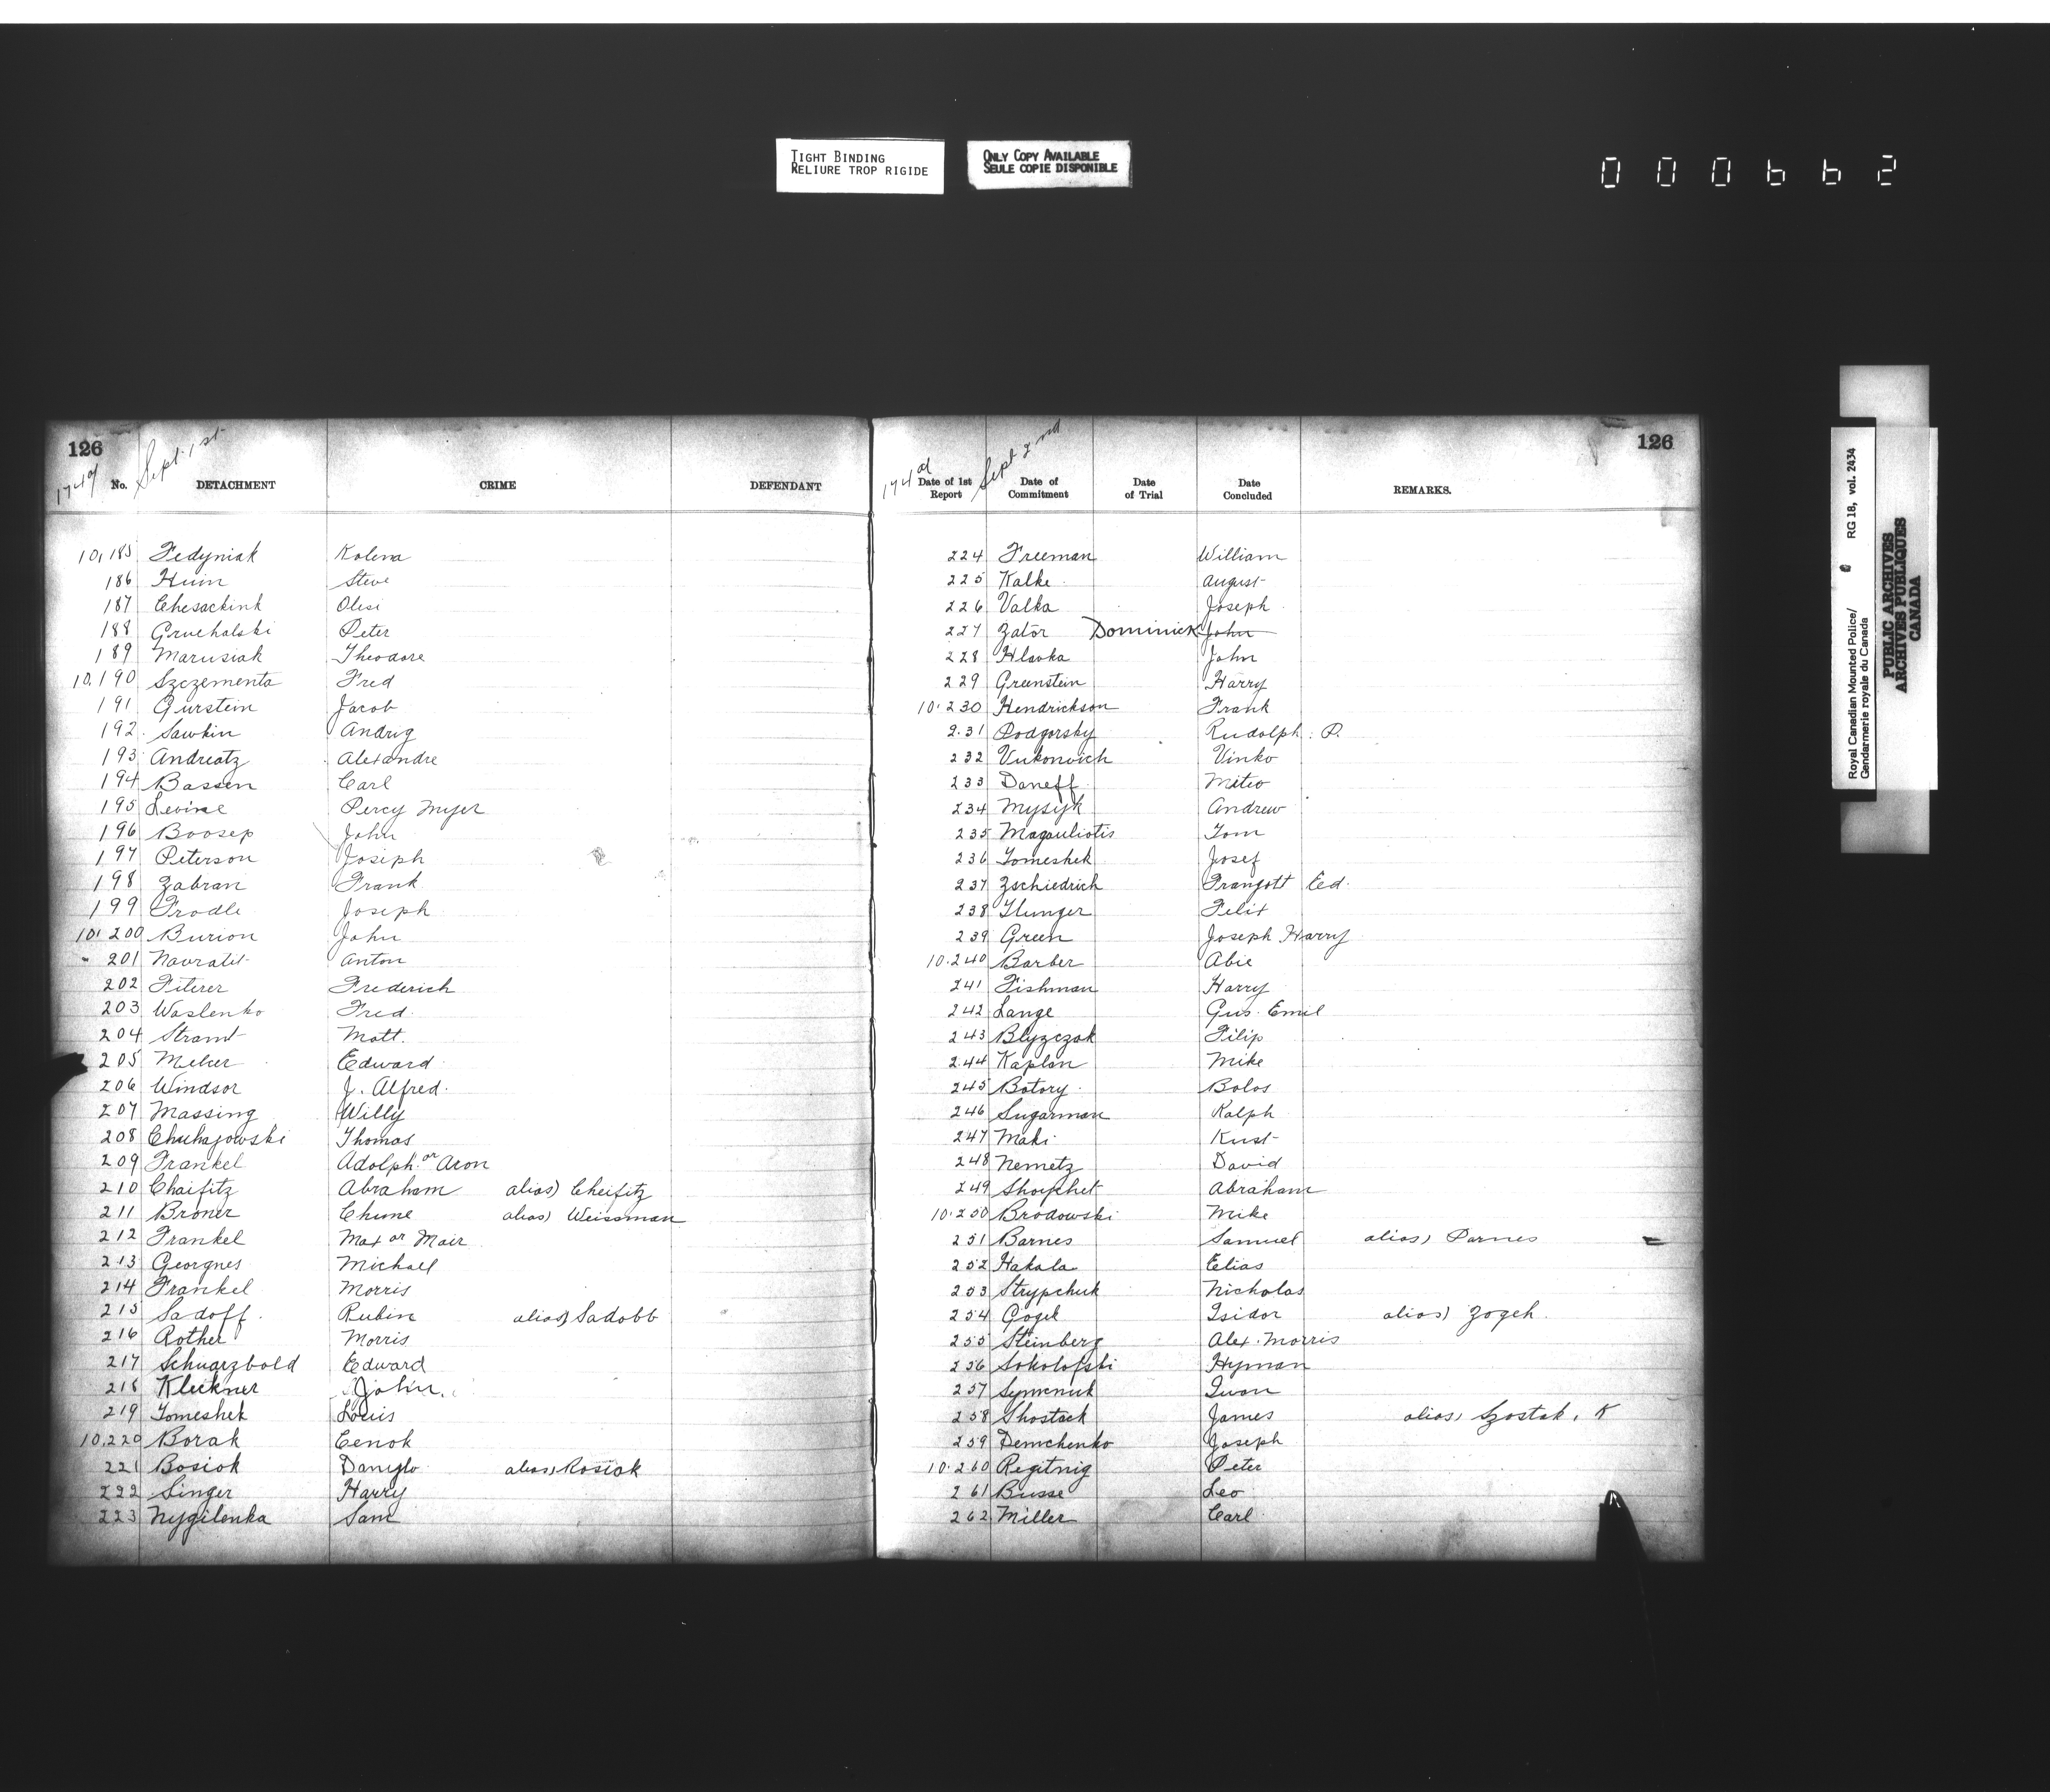 TIGHT BINDING
RELIURE TROP RIGIDE
ONLY COPY AVAILABLE
SEULE COPIE DISPONIBLE
000662
126
Sept. 1st
No. DETACHMENT CRIME DEFENDANT
10,185 Fedyniak Kolena
186 Huin Steve
187 Chesackink Olesi
188 Gruchalski Peter
189 Marusiak Theodore
10.190 Szczementa Fred
191 Gurstein Jacob
192 Sawkin Andrig
193 Andreatz Alexandre
194 Bassen Carl
195 Levine Percy Myer
196 Boosep John
197 Peterson Joseph
198 Zabran Frank
199 Frodle Joseph
10,200 Burion John
201 Navratil Anton
202 Fiterer Frederich
203 Waslenko Fred.
204 Strand Matt.
205 Melzer Edward
206 Windsor J. Alfred.
207 Massing Willy
208 Chuhajowski Thomas
209 Frankel Adolph or Aron
210 Chaifitz Abraham alias) Cheifitz
211 Broner Chune alias) Weissman
212 Frankel Max or Mair
213 Georgnes Michael
214 Frankel Morris
215 Sadoff. Rubin alias) Sadobb
216 Rother Morris
217 Schwarzbold Edward
218 Kleckner John.
219 Tomeshek Louis
10,220 Borak Cenok
221 Bosiok Danylo alias) Rosiak
222 Singer Harry
223 Nygilenka Sam
126
Sept 2nd
Date of 1st Report Date of Commitment Date of Trial Date Concluded REMARKS.
224 Freeman William
225 Kalke August
226 Valka Joseph
227 Zator Dominick John
228 Hlavka John
229 Greenstein Harry
10.230 Hendrickson Frank
231 Podgorsky Rudolph. P.
232 Vukonvich Vinko
233 Daneff Mitio
234 Mysyk Andrew
235 Magouliotis Tom
236 Tomeshek Josef
237 Zschiedrich Trangott Ed.
238 Flunger Felix
239 Green Joseph Harry
10.240 Barber Abie
241 Fishman Harry
242 Lange Gus. Emil
243 Blyzczak Filip
244 Kaplan Mike
245 Botory Bolos
246 Sugarman Ralph
247 Maki Kust
248 Nemetz David
249 Shoiphet Abraham
10.250 Brodowski Mike
251 Barnes Samuel alias) Parnes
252 Hakala Elias
253 Strypchuk Nicholas
254 Gogek Isidor alias) Zogeh.
255 Steinberg Alex. Morris
256 Sokolofski Hyman
257 Symenuk Ivon
258 Shostack James alias) Szostak, K
259 Demchenko Joseph
10.260 Regitnig Peter
261 Busse Leo
262 Miller Carl
Royal Canadian Mounted Police/
Gendarmerie royale du Canada
RG 18, vol. 2434
PUBLIC ARCHIVES
ARCHIVES PUBLIQUES
CANADA